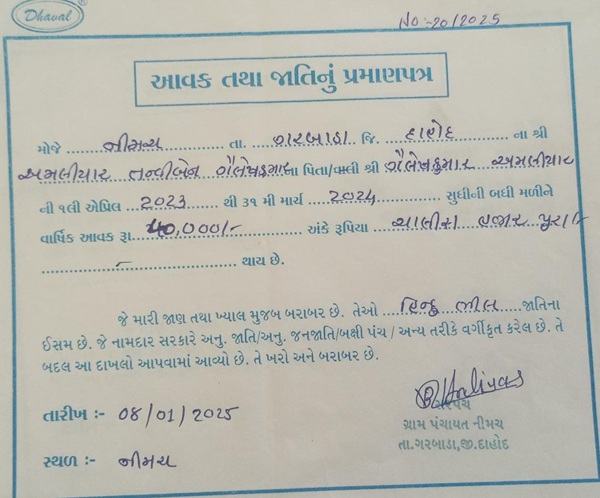 Dhaval ®
No:-20/2025
આવક તથા જાતિનું પ્રમાણપત્ર
મોજે નીમચ તા. ગરબાડા જિ. દાહોદ ના શ્રી
અમલીયાર તન્વીબેન શૈલેષકુમારના પિતા/વલી શ્રી શૈલેષકુમાર અમલીયાર
ની ૧લી એપ્રિલ 2023 થી ૩૧ મી માર્ચ 2024 સુધીની બધી મળીને
વાર્ષિક આવક રૂા. 40,000/- અંકે રૂપિયા ચાલીસ હજાર પુરા
- થાય છે.
જે મારી જાણ તથા ખ્યાલ મુજબ બરાબર છે. તેઓ હિન્દુ ભીલ જાતિના
ઈસમ છે. જે નામદાર સરકારે અનુ. જાતિ/અનુ. જનજાતિ/બક્ષી પંચ / અન્ય તરીકે વર્ગીકૃત કરેલ છે. તે
બદલ આ દાખલો આપવામાં આવ્યો છે. તે ખરો અને બરાબર છે.
તારીખ :- 08/01/2025
સરપંચ
ગ્રામ પંચાયત નીમચ
તા.ગરબાડા,જી.દાહોદ
સ્થળ :- નીમચ